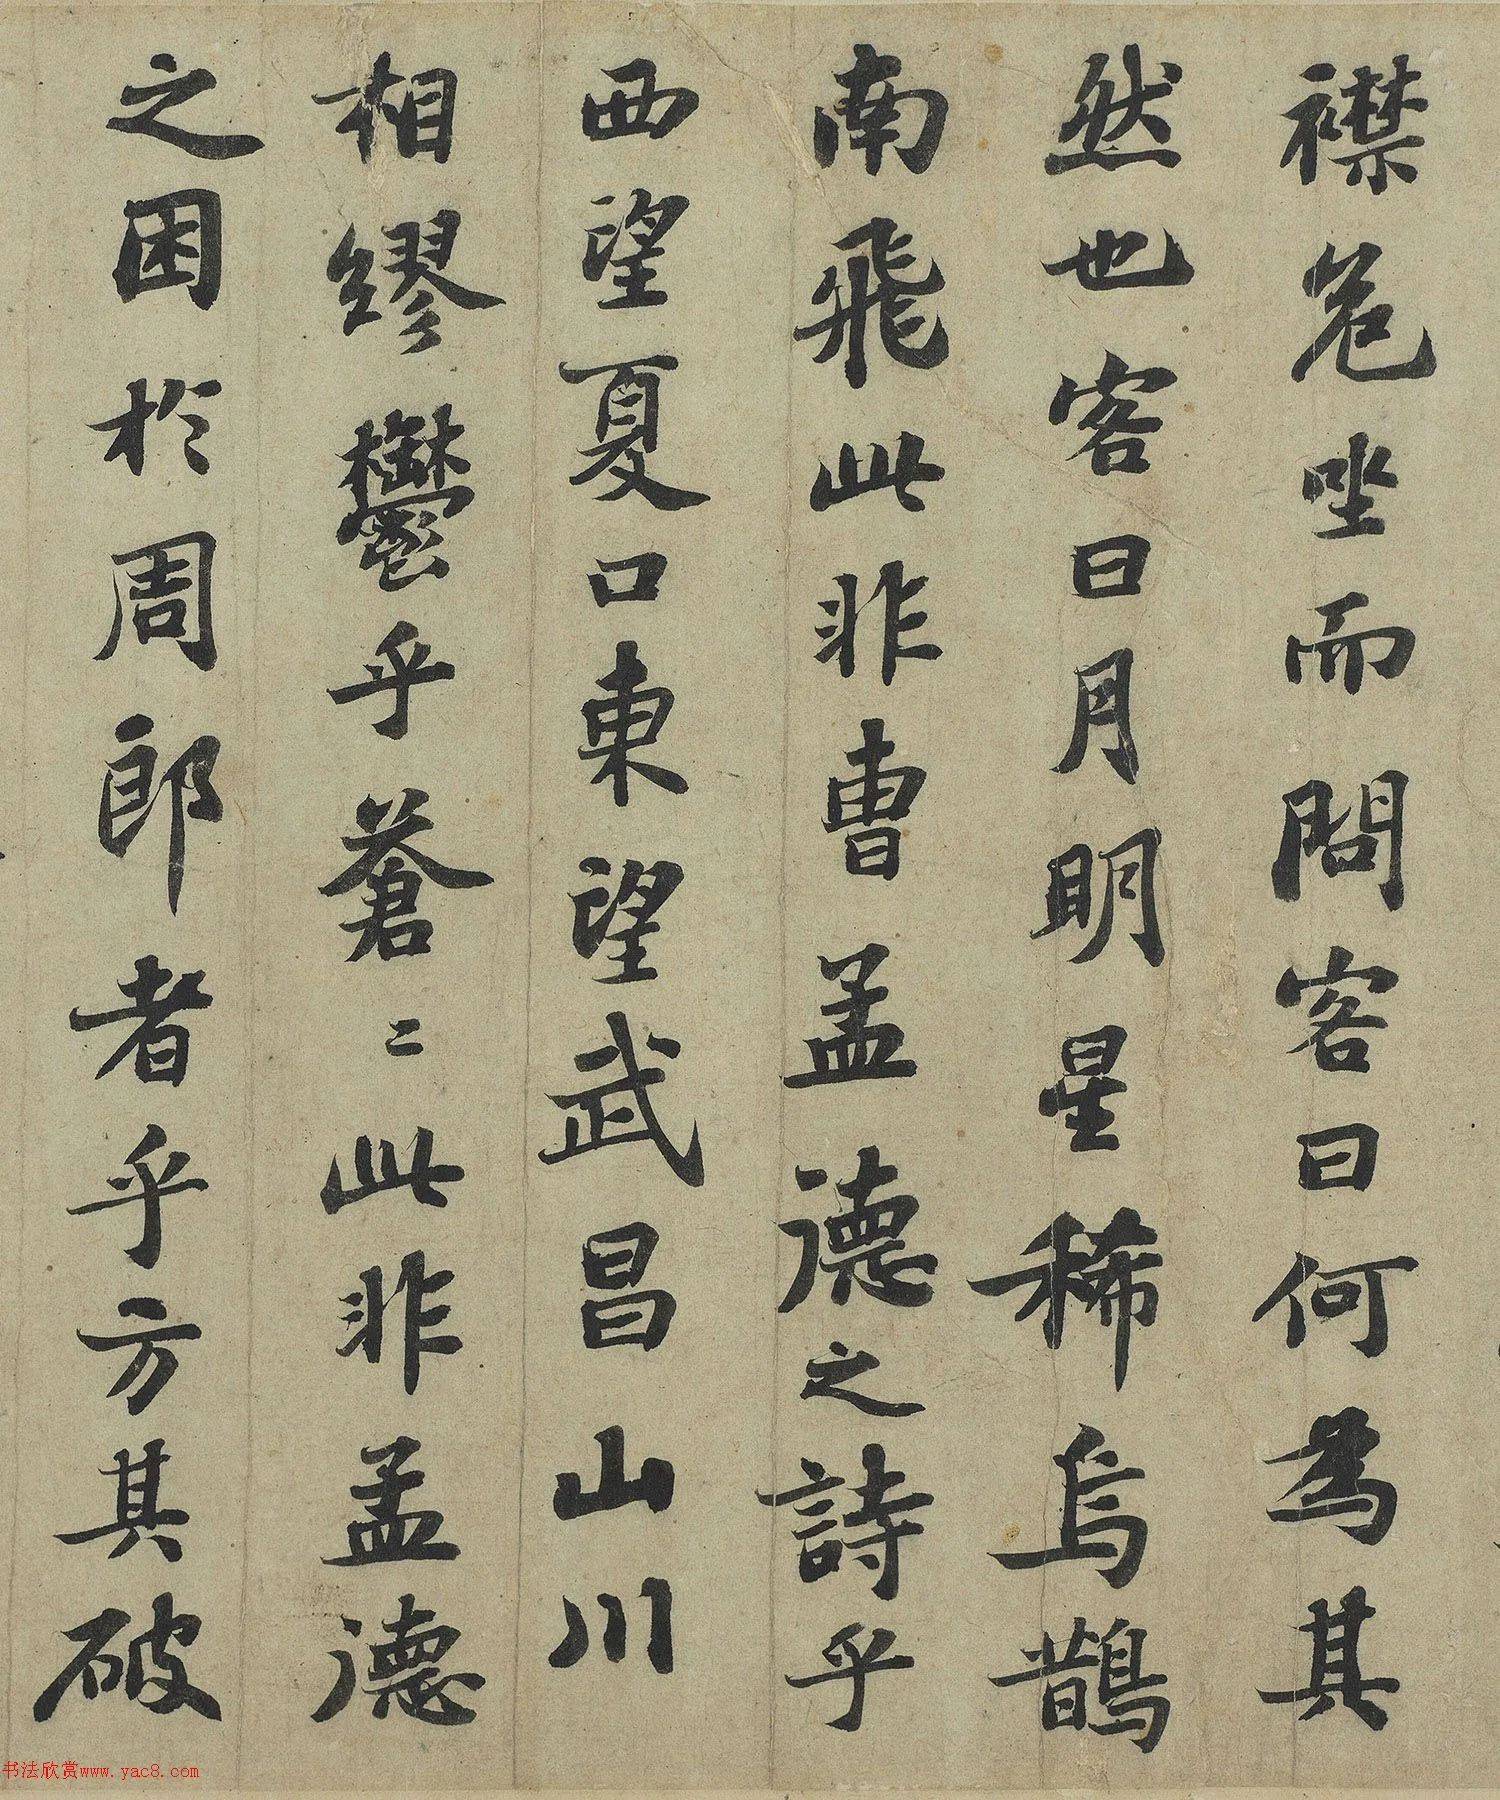 襟危坐而問客曰何為其
然也客曰月明星稀烏鵲
南飛此非曹孟德之詩乎
西望夏口東望武昌山川
相繆鬱乎蒼〻此非孟德
之困於周郎者乎方其破
书法欣赏www.yac8.com